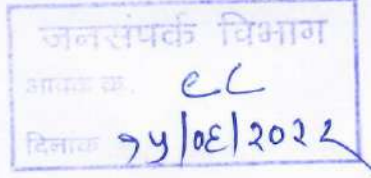 जनसंपर्क विभाग
आवक क्र. ९८
दिनांक १५/०६/२०२२